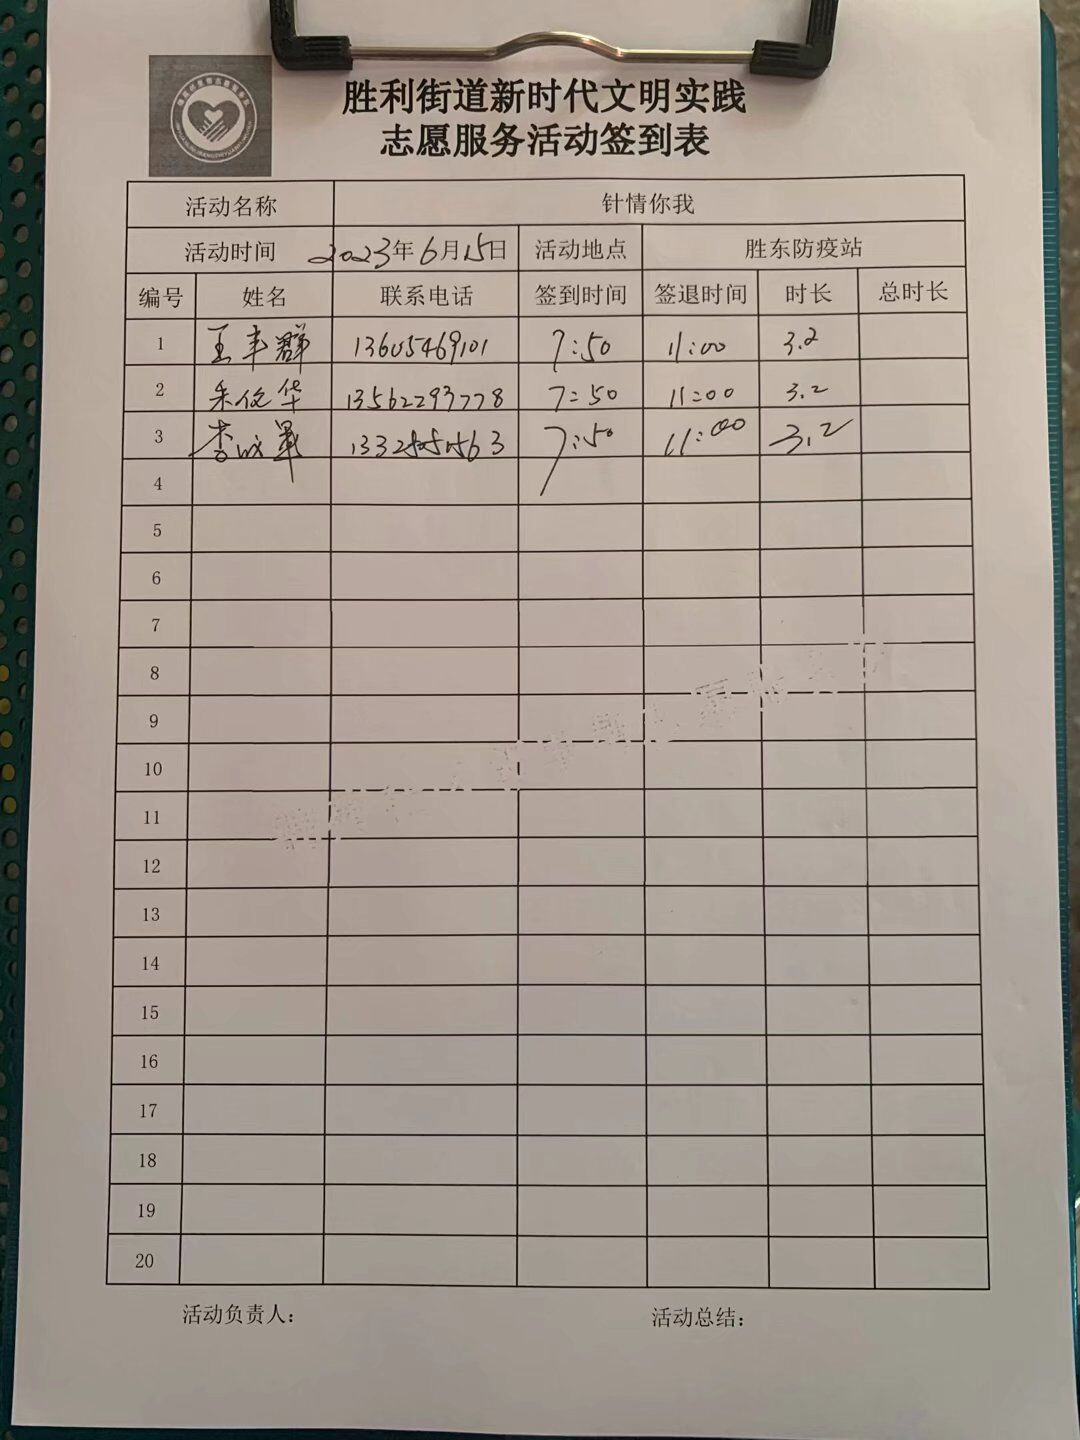 胜利街道新时代文明实践
志愿服务活动签到表
活动名称 针情你我
活动时间 2023年6月15日 活动地点 胜东防疫站
编号 姓名 联系电话 签到时间 签退时间 时长 总时长
1 王丰群 13605469101 7:50 11:00 3.2
2 朱俊华 13562293778 7:50 11:00 3.2
3 李 7:50 11:00 3.2
4
5
6
7
8
9
10
11
12
13
14
15
16
17
18
19
20
活动负责人: 活动总结: